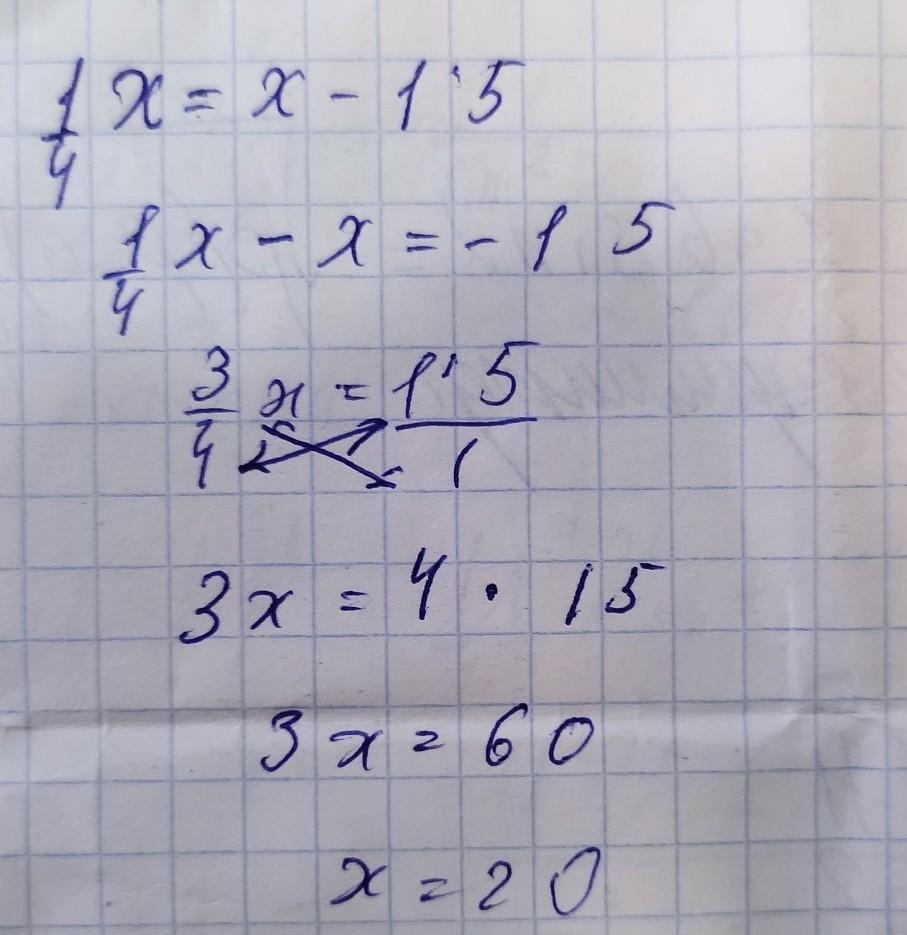 1/4 x = x - 15
1/4 x - x = - 15
3/4 x = 15/1
3x = 4 · 15
3x = 60
x = 20